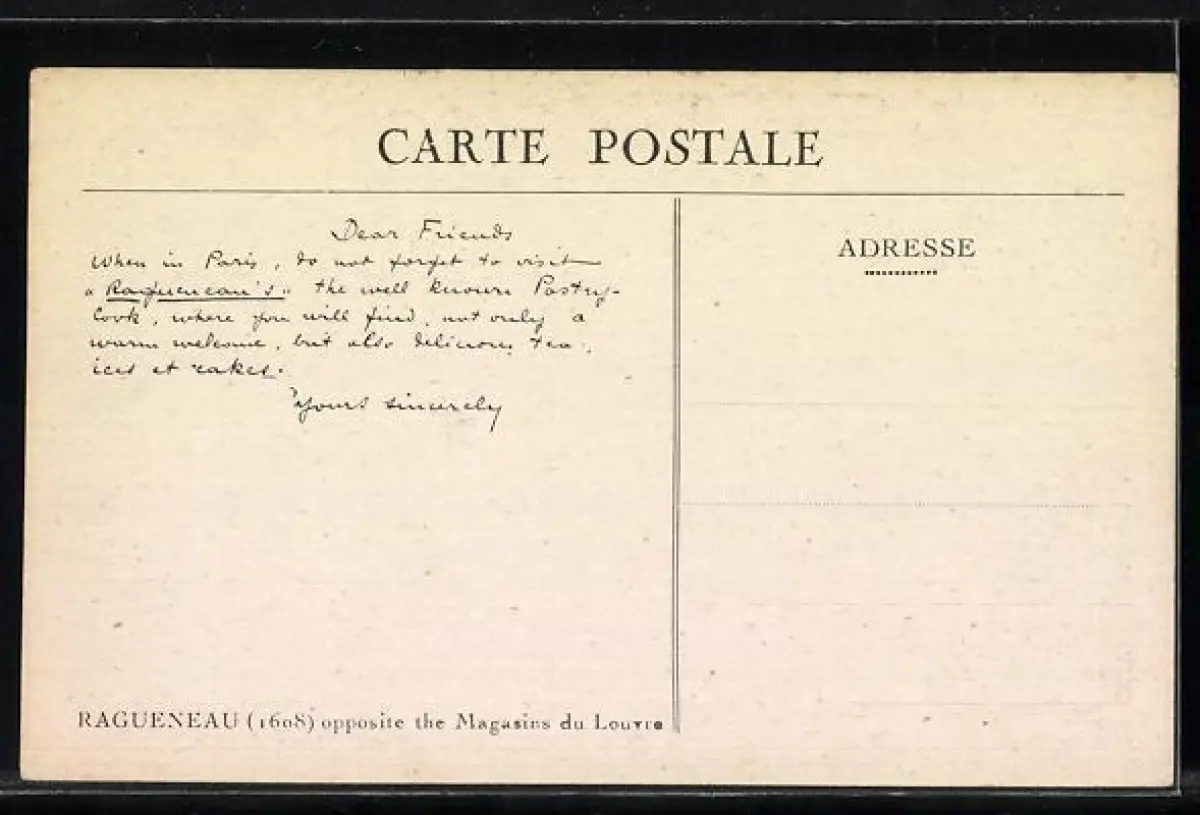 CARTE POSTALE
Dear Friends
When in Paris, do not forget to visit
"Ragueneau's" the well known Pastry-
Cook, where you will find, not only a
warm welcome, but also delicious tea,
ices et cakes.
Yours sincerely
RAGUENEAU (1608) opposite the Magasins du Louvre
ADRESSE